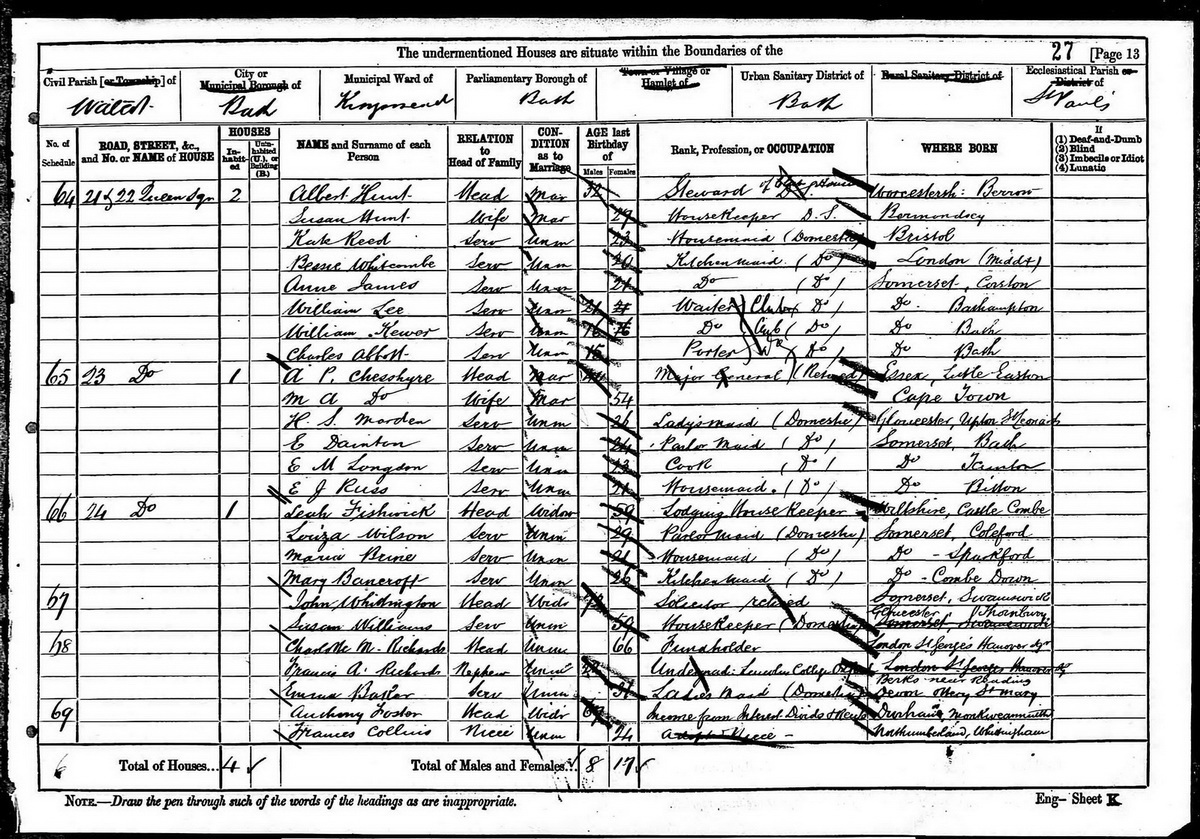 The undermentioned Houses are situate within the Boundaries of the
27 [Page 13
Civil Parish [or Township] of
City or Municipal Borough of
Municipal Ward of
Parliamentary Borough of
Town or Village or Hamlet of
Urban Sanitary District of
Rural Sanitary District of
Ecclesiastical Parish or District of
Walcot Bath Kingsmead Bath Bath St Paul's
No. of Schedule
ROAD, STREET, &c., and No. or NAME of HOUSE
HOUSES
Inhabited
Uninhabited (U.), or Building (B.)
NAME and Surname of each Person
RELATION to Head of Family
CONDITION as to Marriage
AGE last Birthday of
Males Females
Rank, Profession, or OCCUPATION
WHERE BORN
If
(1) Deaf-and-Dumb
(2) Blind
(3) Imbecile or Idiot
(4) Lunatic
64 21 & 22 Queen Sqr 2 Albert Hunt Head Mar 32 Steward of House Worcestersh: Berrow
Susan Hunt Wife Mar 29 Housekeeper D.S. Bermondsey
Kate Reed Serv Unm 23 Housemaid (Domestic) Bristol
Bessie Whitcombe Serv Unm 20 Kitchenmaid (Do) London (Middx)
Anne James Serv Unm 21 Do (Do) Somerset, Corston
William Lee Serv Unm 21 Waiter Club (Do) Do Bathampton
William Kewer Serv Unm 16 Do Club (Do) Do Bath
Charles Abbott Serv Unm 15 Porter Do (Do) Do Bath
65 23 Do 1 A P. Chesshyre Head Mar Major General (Retired) Essex, Little Easton
M A Do Wife Mar 54 Cape Town
H. S. Marden Serv Unm 26 Lady's maid (Domestic) Gloucester, Upton St Leonards
E Dainton Serv Unm 24 Parlor Maid (Do) Somerset, Bath
E M Longdon Serv Unm Cook (Do) Do Taunton
E J Russ Serv Unm 21 Housemaid (Do) Do Bitton
66 24 Do 1 Leah Fishwick Head Widow 59 Lodging House Keeper Wiltshire, Castle Combe
Louiza Wilson Serv Unm 29 Parlor Maid (Domestic) Somerset, Coleford
Maria Brine Serv Unm 21 Housemaid (Do) Do - Sparkford
Mary Bancroft Serv Unm 26 Kitchen Maid (Do) Do - Combe Down
67 John Whittington Head Widr Solicitor retired Somerset, Swainswick
Susan Williams Serv Unm 50 Housekeeper (Domestic) Gloucester Thornbury
68 Charlotte M. Richards Head Unm 66 Fundholder London St George's Hanover Sqr
Francis A. Richards Nephew Unm Undergrad: Lincoln College Oxford London St Georges Hanover Sq
Berks near Reading
Emma Baker Serv Unm 31 Ladies Maid (Domestic) Devon Ottery St Mary
69 Anthony Foster Head Widr Income from Interest Divids & Rents Durham, Monkwearmouth
Frances Collins Niece Unm 24 Niece - Northumberland, Whittingham
6 Total of Houses... 4 Total of Males and Females... 8 17
NOTE.—Draw the pen through such of the words of the headings as are inappropriate.
Eng— Sheet K